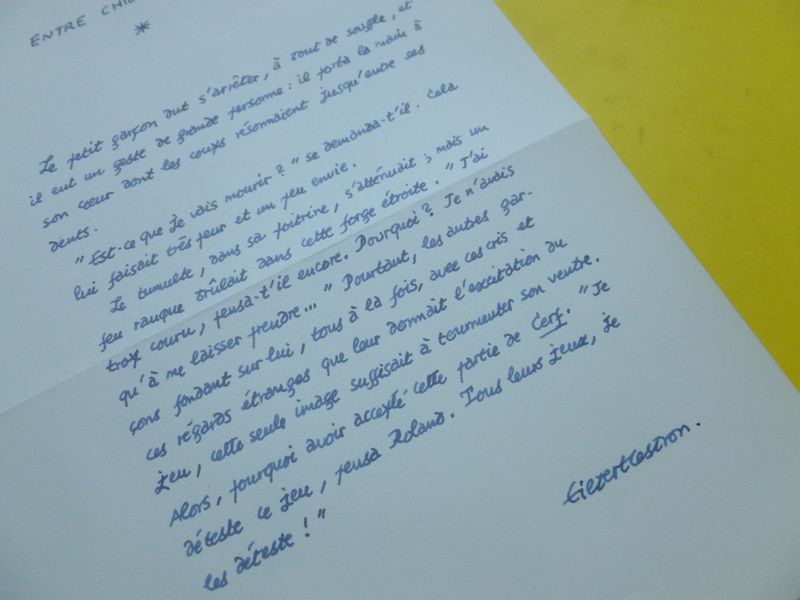 ENTRE CHI
*
Le petit garçon dut s'arrêter, à bout de souffle, et
il eut un geste de grande personne : il porta la main à
son cœur dont les coups résonnaient jusqu'entre ses
dents.
"Est-ce que je vais mourir ?" se demanda-t'il. Cela
lui faisait très peur et un peu envie.
Le tumulte, dans sa poitrine, s'atténuait ; mais un
feu rauque brûlait dans cette forge étroite. "J'ai
trop couru, pensa-t'il encore. Pourquoi ? Je n'avais
qu'à me laisser prendre..." Pourtant, les autres gar-
çons fondant sur lui, tous à la fois, avec ces cris et
ces régards étranges que leur donnait l'excitation du
jeu, cette seule image suffisait à tourmenter son ventre.
Alors, pourquoi avoir accepté cette partie de Cerf. "Je
déteste ce jeu, pensa Roland. Tous leurs jeux, je
les déteste !"